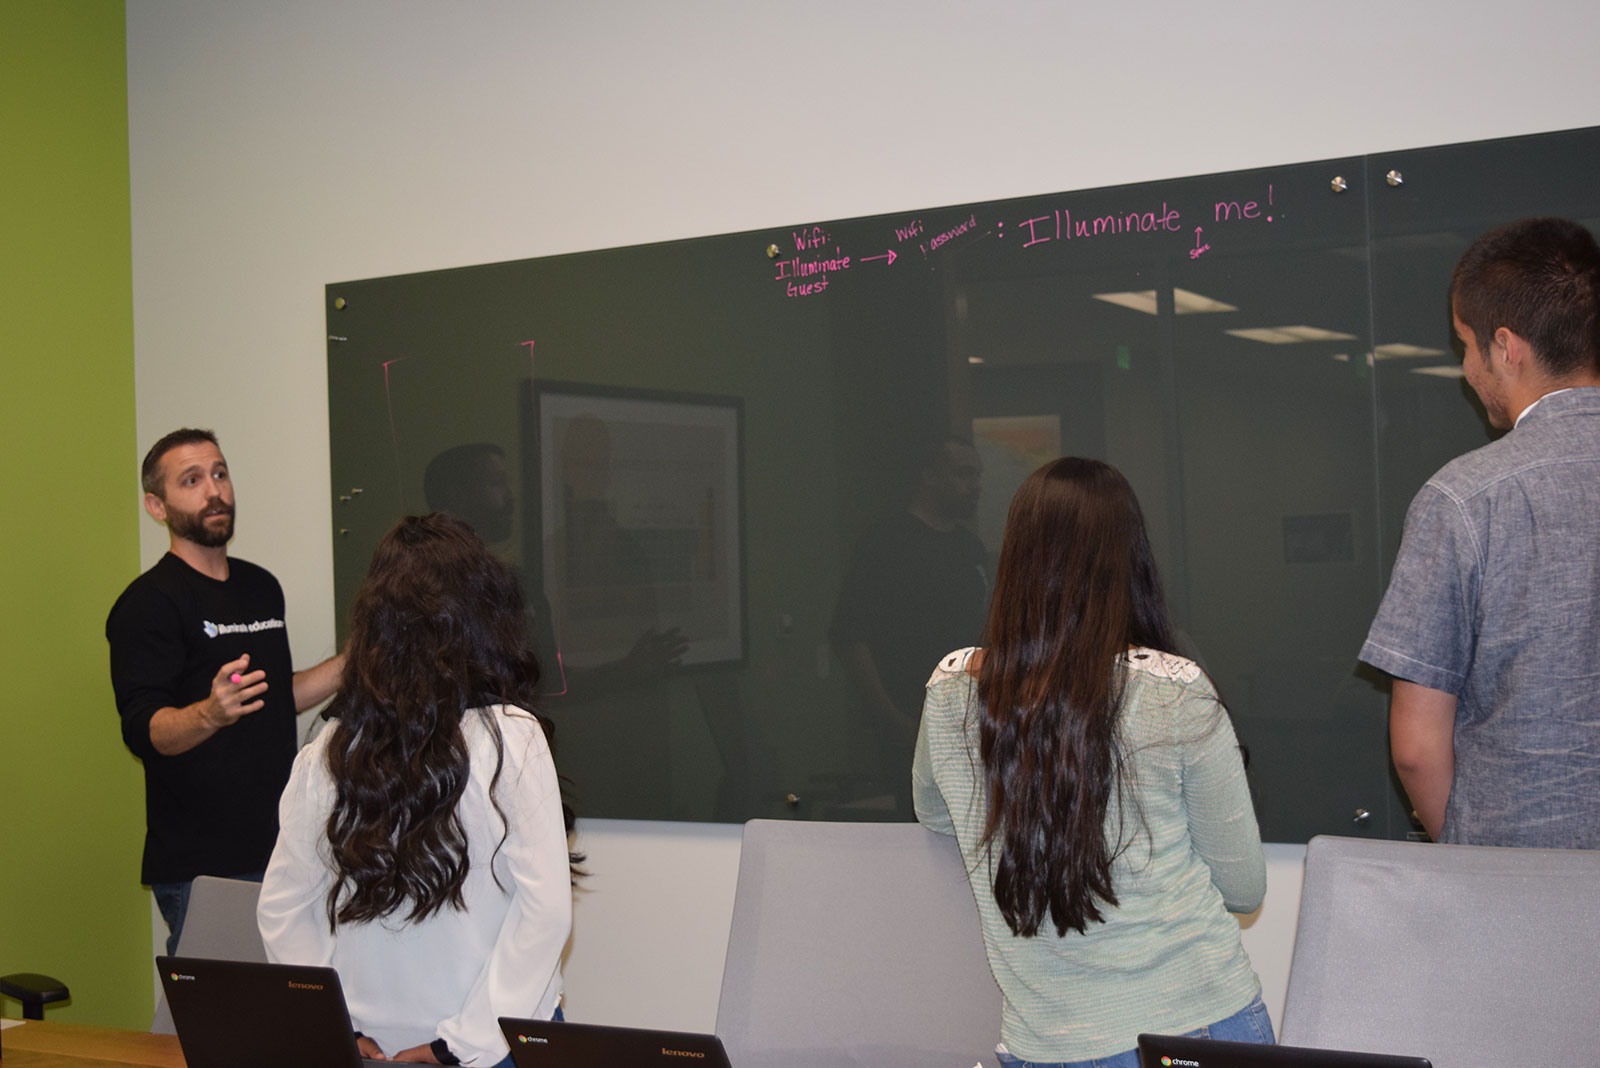 Wifi:
Illuminate
Guest
Wifi
Password
: Illuminate me!
Space
illuminate education
chrome
lenovo
chrome
lenovo
chrome